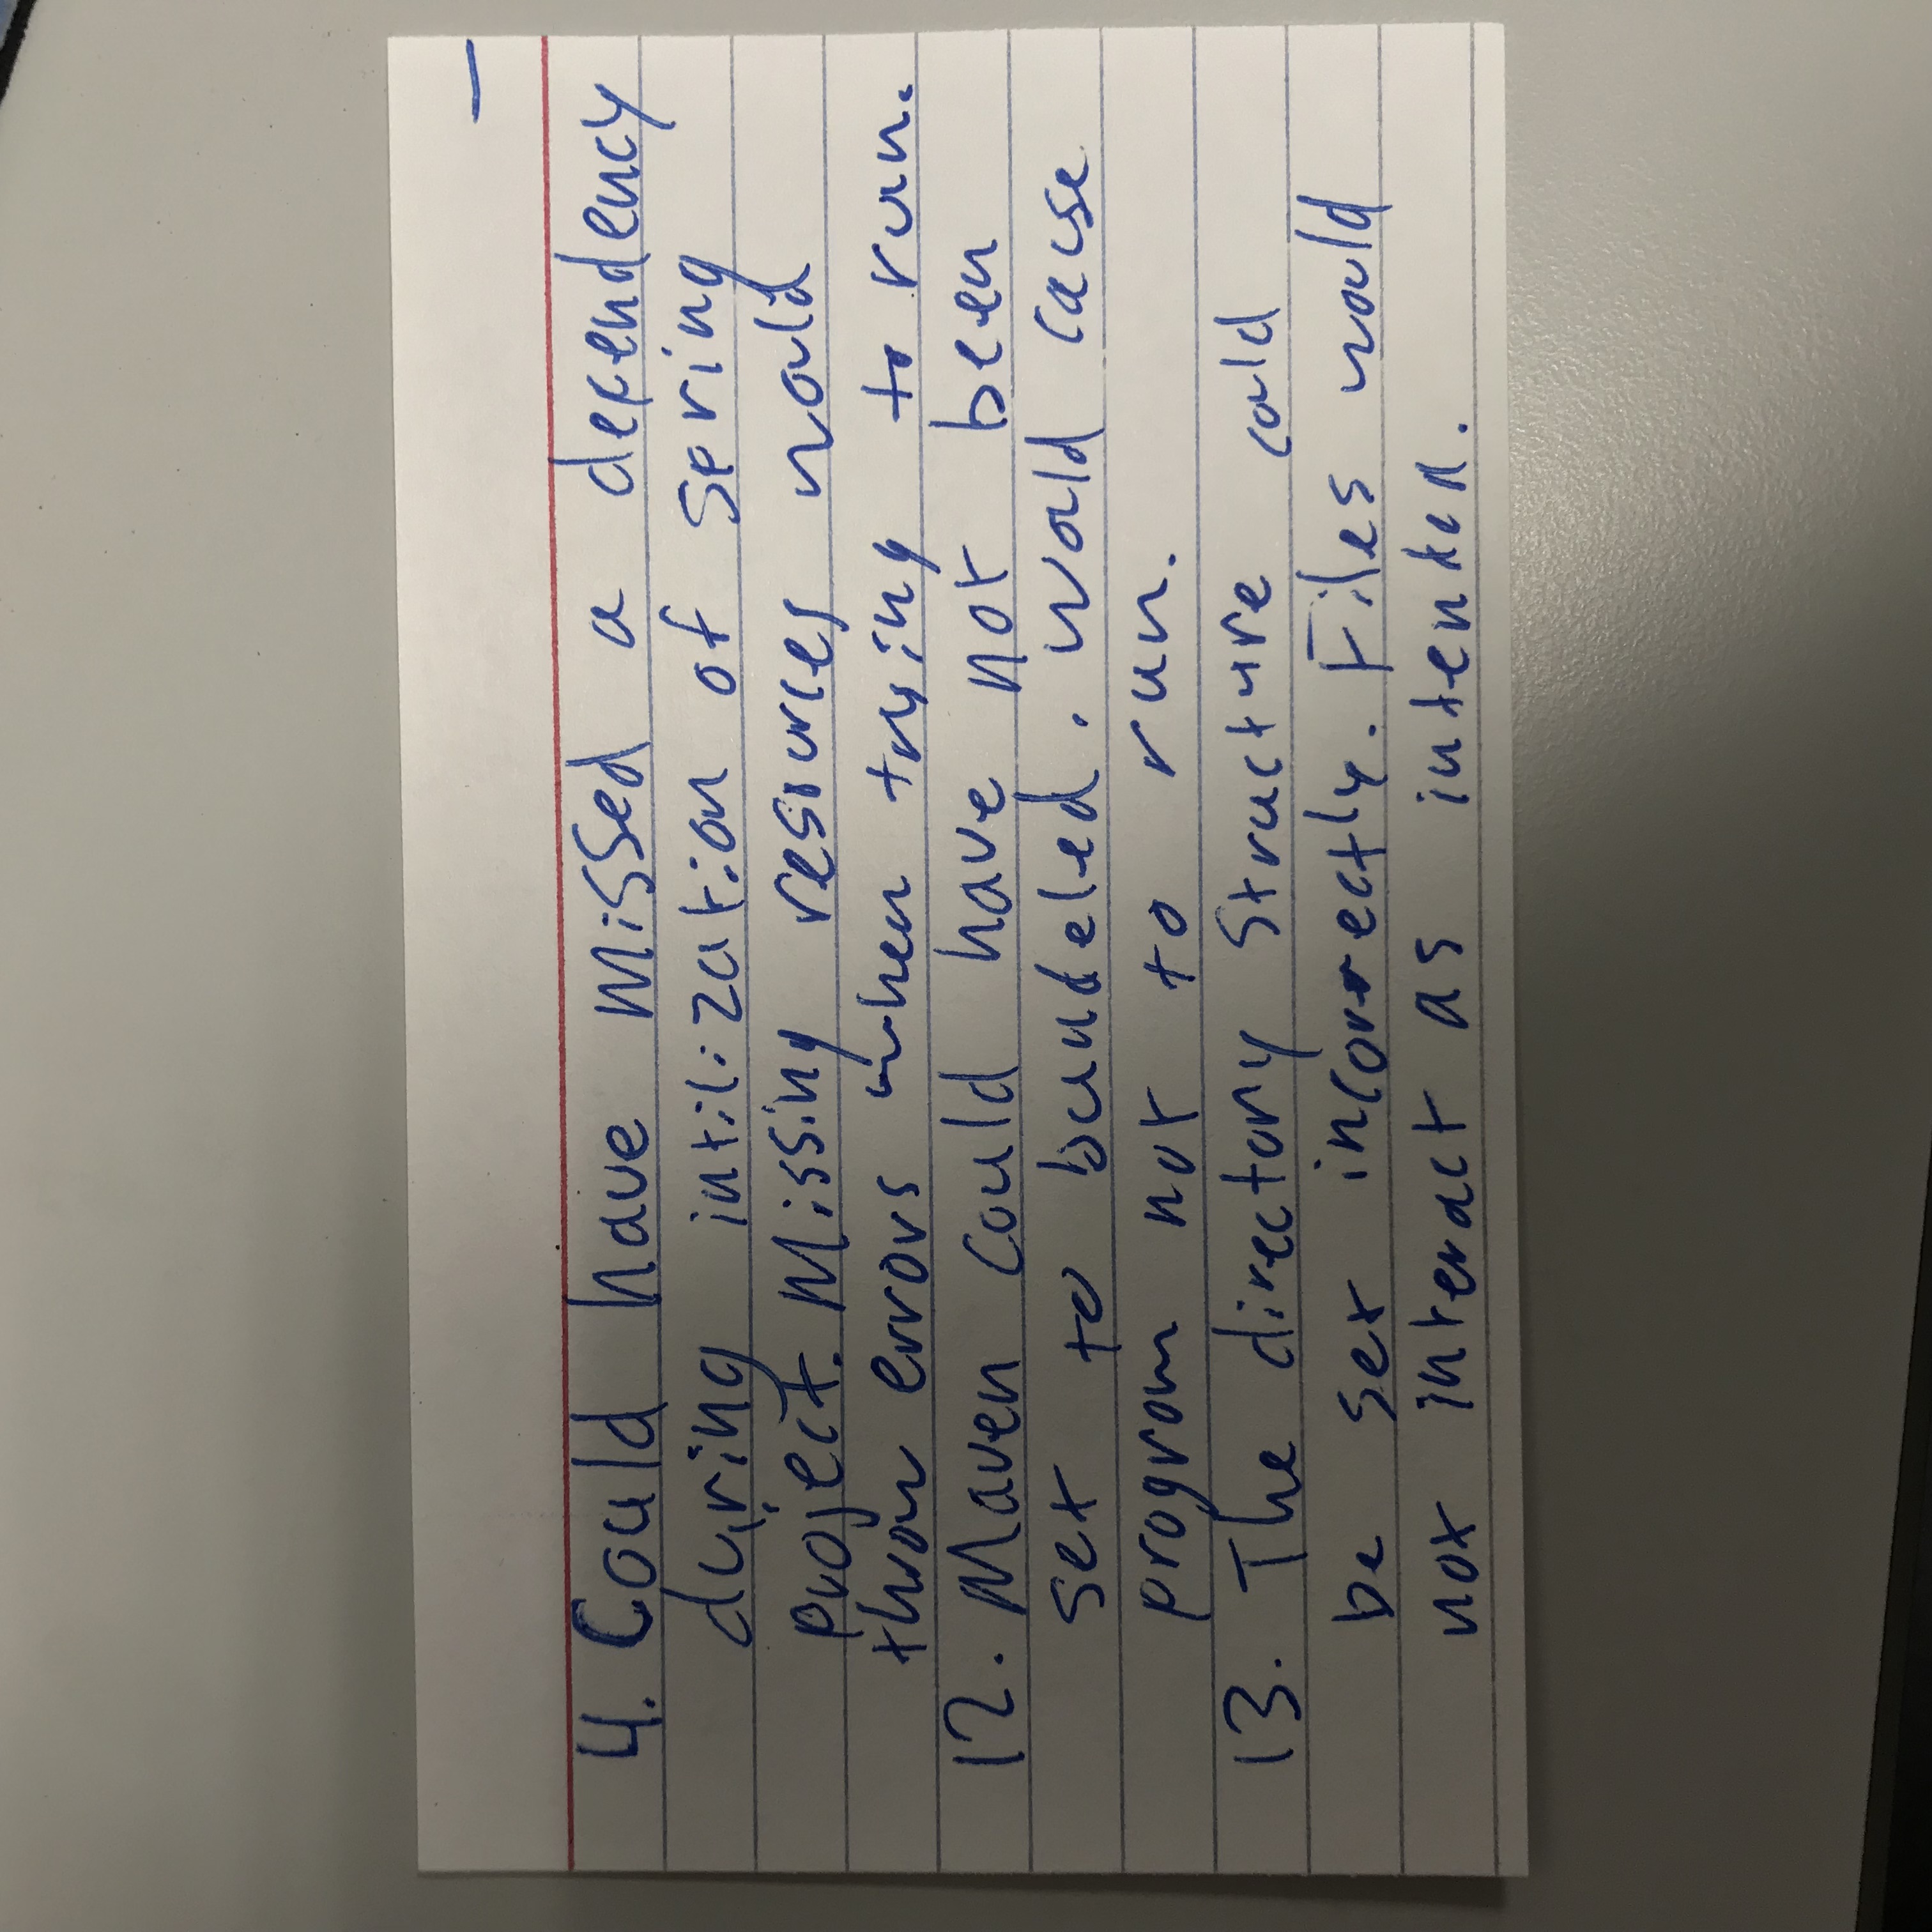 4. Could have missed a dependency
during intilization of spring
project. Missing resources would
throw errors when trying to run.
12. Maven could have not been
set to bundeled. Would cause
program not to run.
13. The directory structure could
be set incorrectly. Files would
not interact as intended.